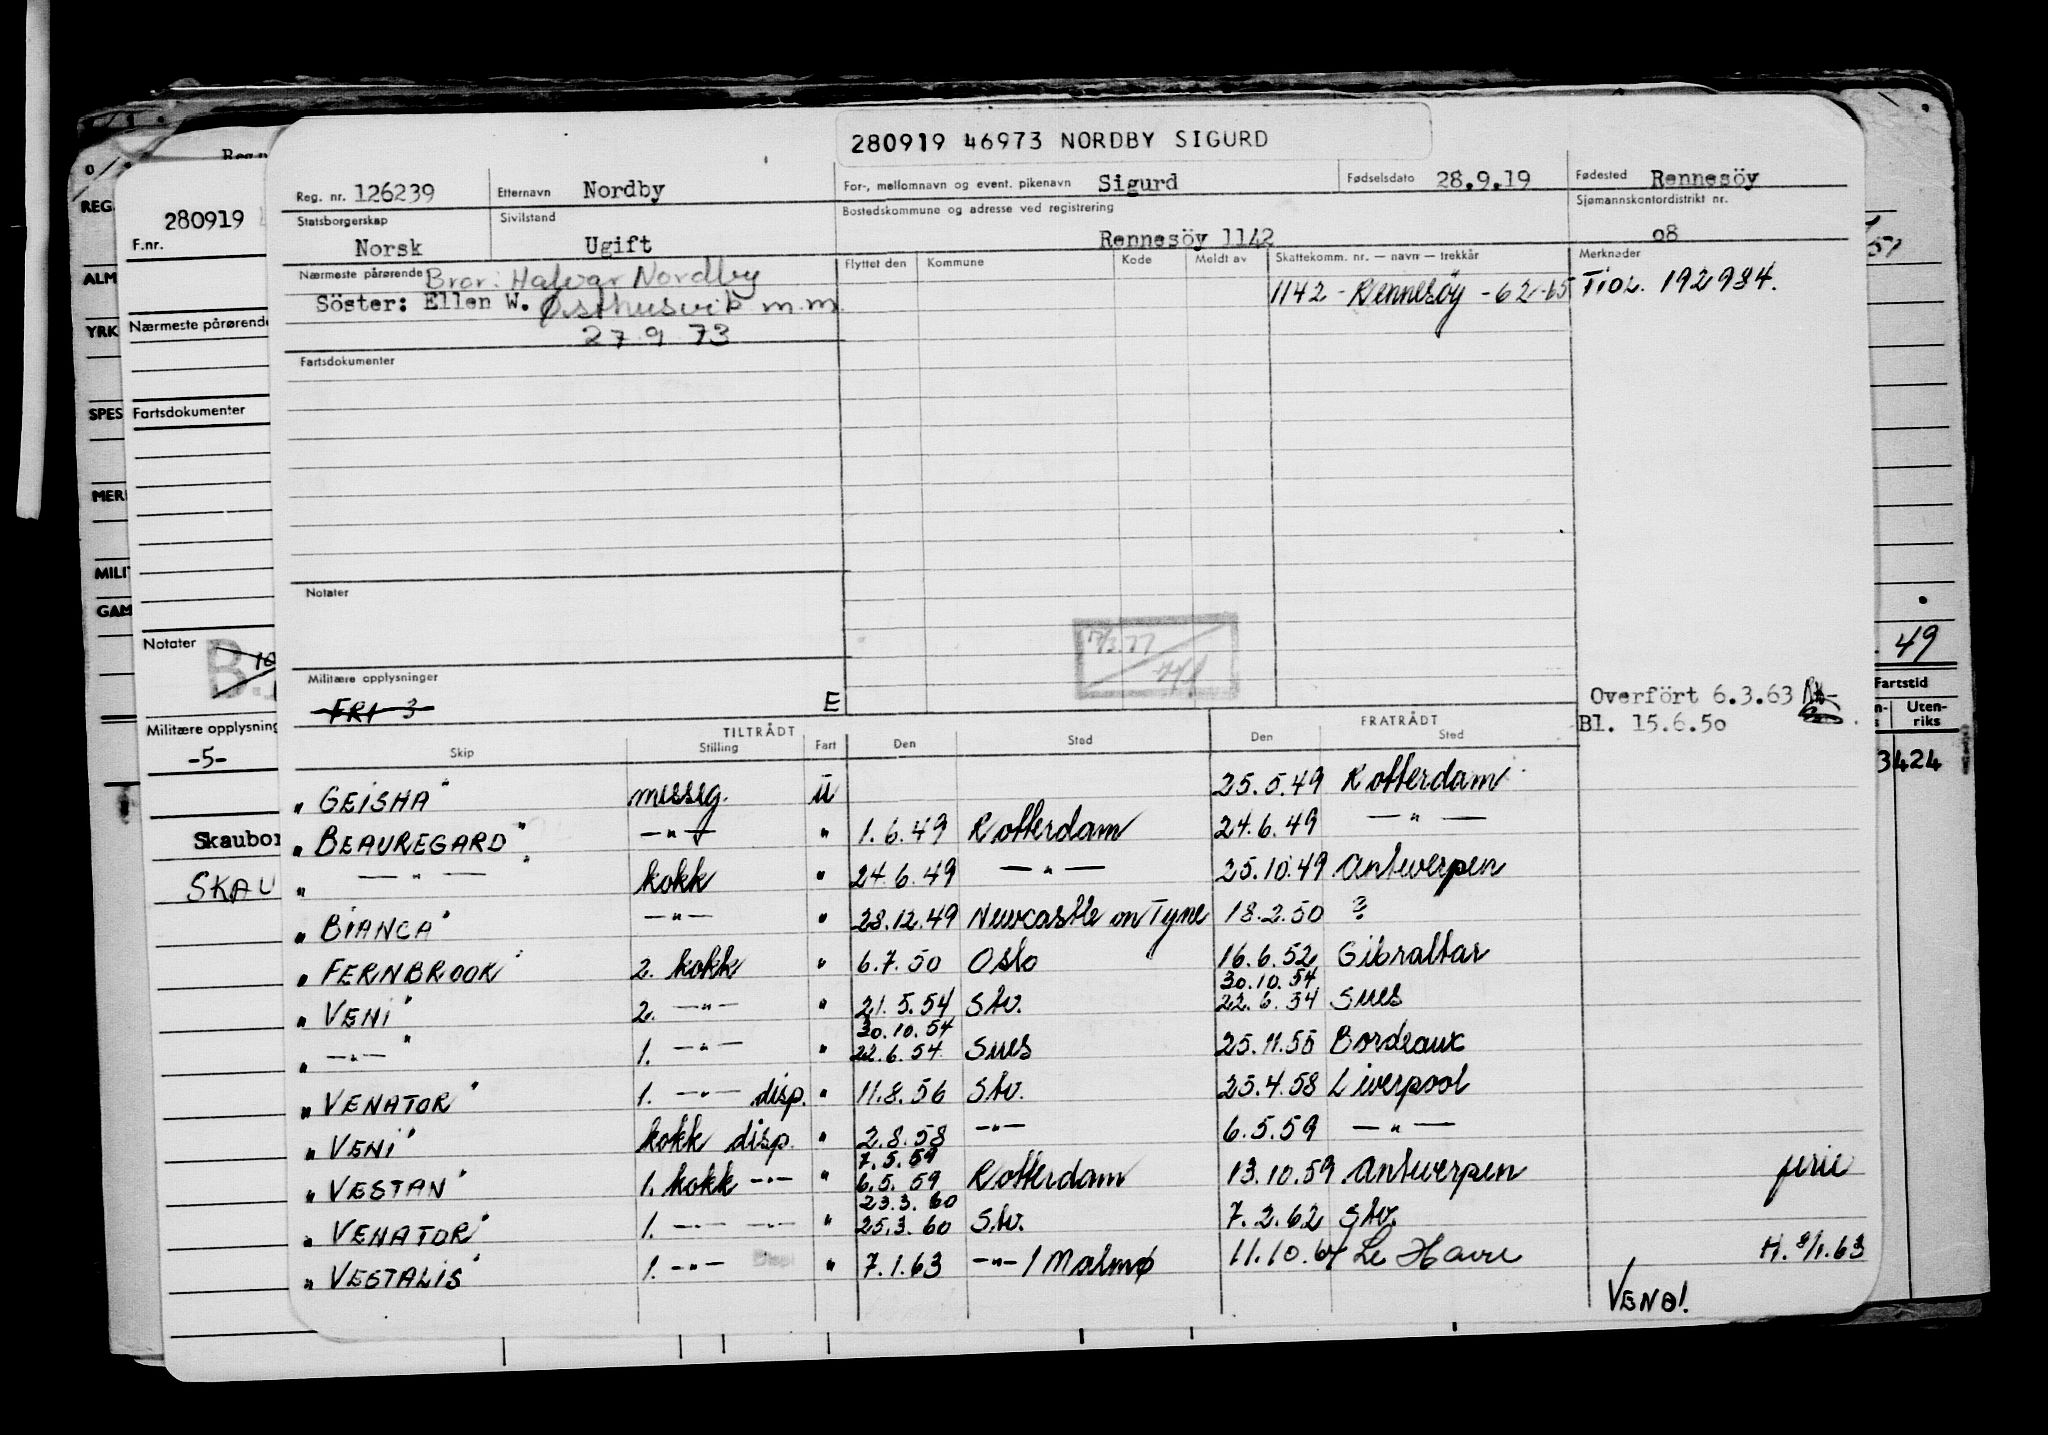 280919 46973 NORDBY SIGURD
Reg. nr. 126239 Etternavn Nordby For-, mellomnavn og event. pikenavn Sigurd Fødselsdato 28.9.19 Fødested Rennesöy
Statsborgerskap Norsk Sivilstand Ugift Bostedskommune og adresse ved registrering Rennesöy 1142 Sjømannskontordistrikt nr. 08
Nærmeste pårørende Bror: Halvar Nordby
Söster: Ellen W. Østhusvik m.m.
27 9 73
Flyttet den Kommune Kode Meldt av Skattekomm. nr. — navn — trekkår Merknader
1142 - Rennesöy - 62-65 Tiol. 192984.
Fartsdokumenter
Notater
17/2.77
Militære opplysninger
FRI 3 E
Overfört 6.3.63
Bl. 15.6.50
TILTRÅDT FRATRÅDT
Skip Stilling Fart Den Sted Den Sted
" GEISHA" messg. U 25.5.49 Rotterdam
" BEAUREGARD" —"— " 1.6.49 Rotterdam 24.6.49 —"—
" —"— " kokk " 24.6.49 —"— 25.10.49 Antwerpen
" BIANCA" —"— " 28.12.49 Newcastle on Tyne 18.2.50 ?
" FERNBROOK" 2. kokk " 6.7.50 Oslo 16.6.52 Gibraltar
30.10.54
" VENI" 2. —"— " 21.5.54 Stv. 22.6.54 Sues
30.10.54
" —"— " 1. —"— " 22.6.54 Sues 25.11.55 Bordeaux
" VENATOR" 1. —"— disp. " 11.8.56 Stv. 25.4.58 Liverpool
" VENI" kokk disp. " 2.8.58 —"— 6.5.59 —"—
7.5.59
" VESTAN" 1. kokk —"— " 6.5.59 Rotterdam 13.10.59 Antwerpen ferie
23.3.60
" VENATOR" 1. —"— —"— " 25.3.60 Stv. 7.2.62 Stv.
" VESTALIS" 1. —"— Disp " 7.1.63 —"— / Malmø 11.10.64 Le Havre H. 8/1.63
VEND!
280919
F.nr.
Nærmeste pårørende
Fartsdokumenter
Notater
B.
Militære opplysning
-5-
Skaubor
SKAU
REG.
ALM
YRK
SPES
MER
MILI
GAM
51
49
Fartstid
Uten-
riks
3424